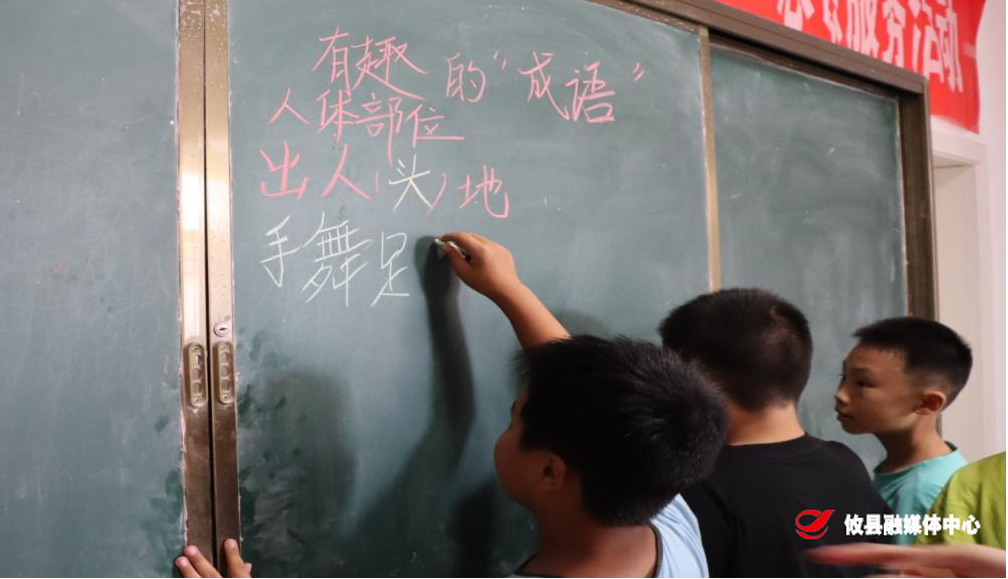 有趣的“成语”
人体部位
出人(头)地
手舞足
服务活动
攸县融媒体中心